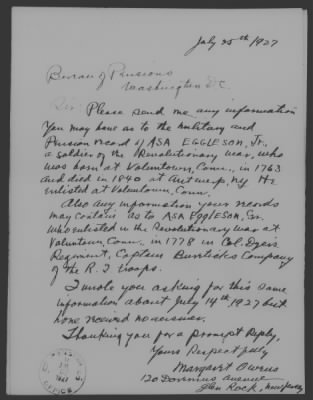 July 25th 1927
Bureau of Pensions
Washington D.C.
Sir: Please send me any information
You may have as to the military and
Pension record of ASA EGGLESON, Jr.,
a soldier of the Revolutionary war, who
was born at Voluntown, Conn., in 1763
and died in 1840 at Antwerp, N.Y. He
enlisted at Voluntown, Conn.
Also any information your records
may contain as to ASA EggLESON, Sr.
who enlisted in the Revolutionary war at
Voluntown, Conn., in 1778 in Col. Dyer's
Regiment, Captain Company
of the R.I troops.
I wrote you asking for this same
information about July 14th 1927 but
have received no answer.
Thanking you for a prompt Reply,
Yours Respectfully
Margaret Owens
120 Avenue
Glen Rock, New Jersey